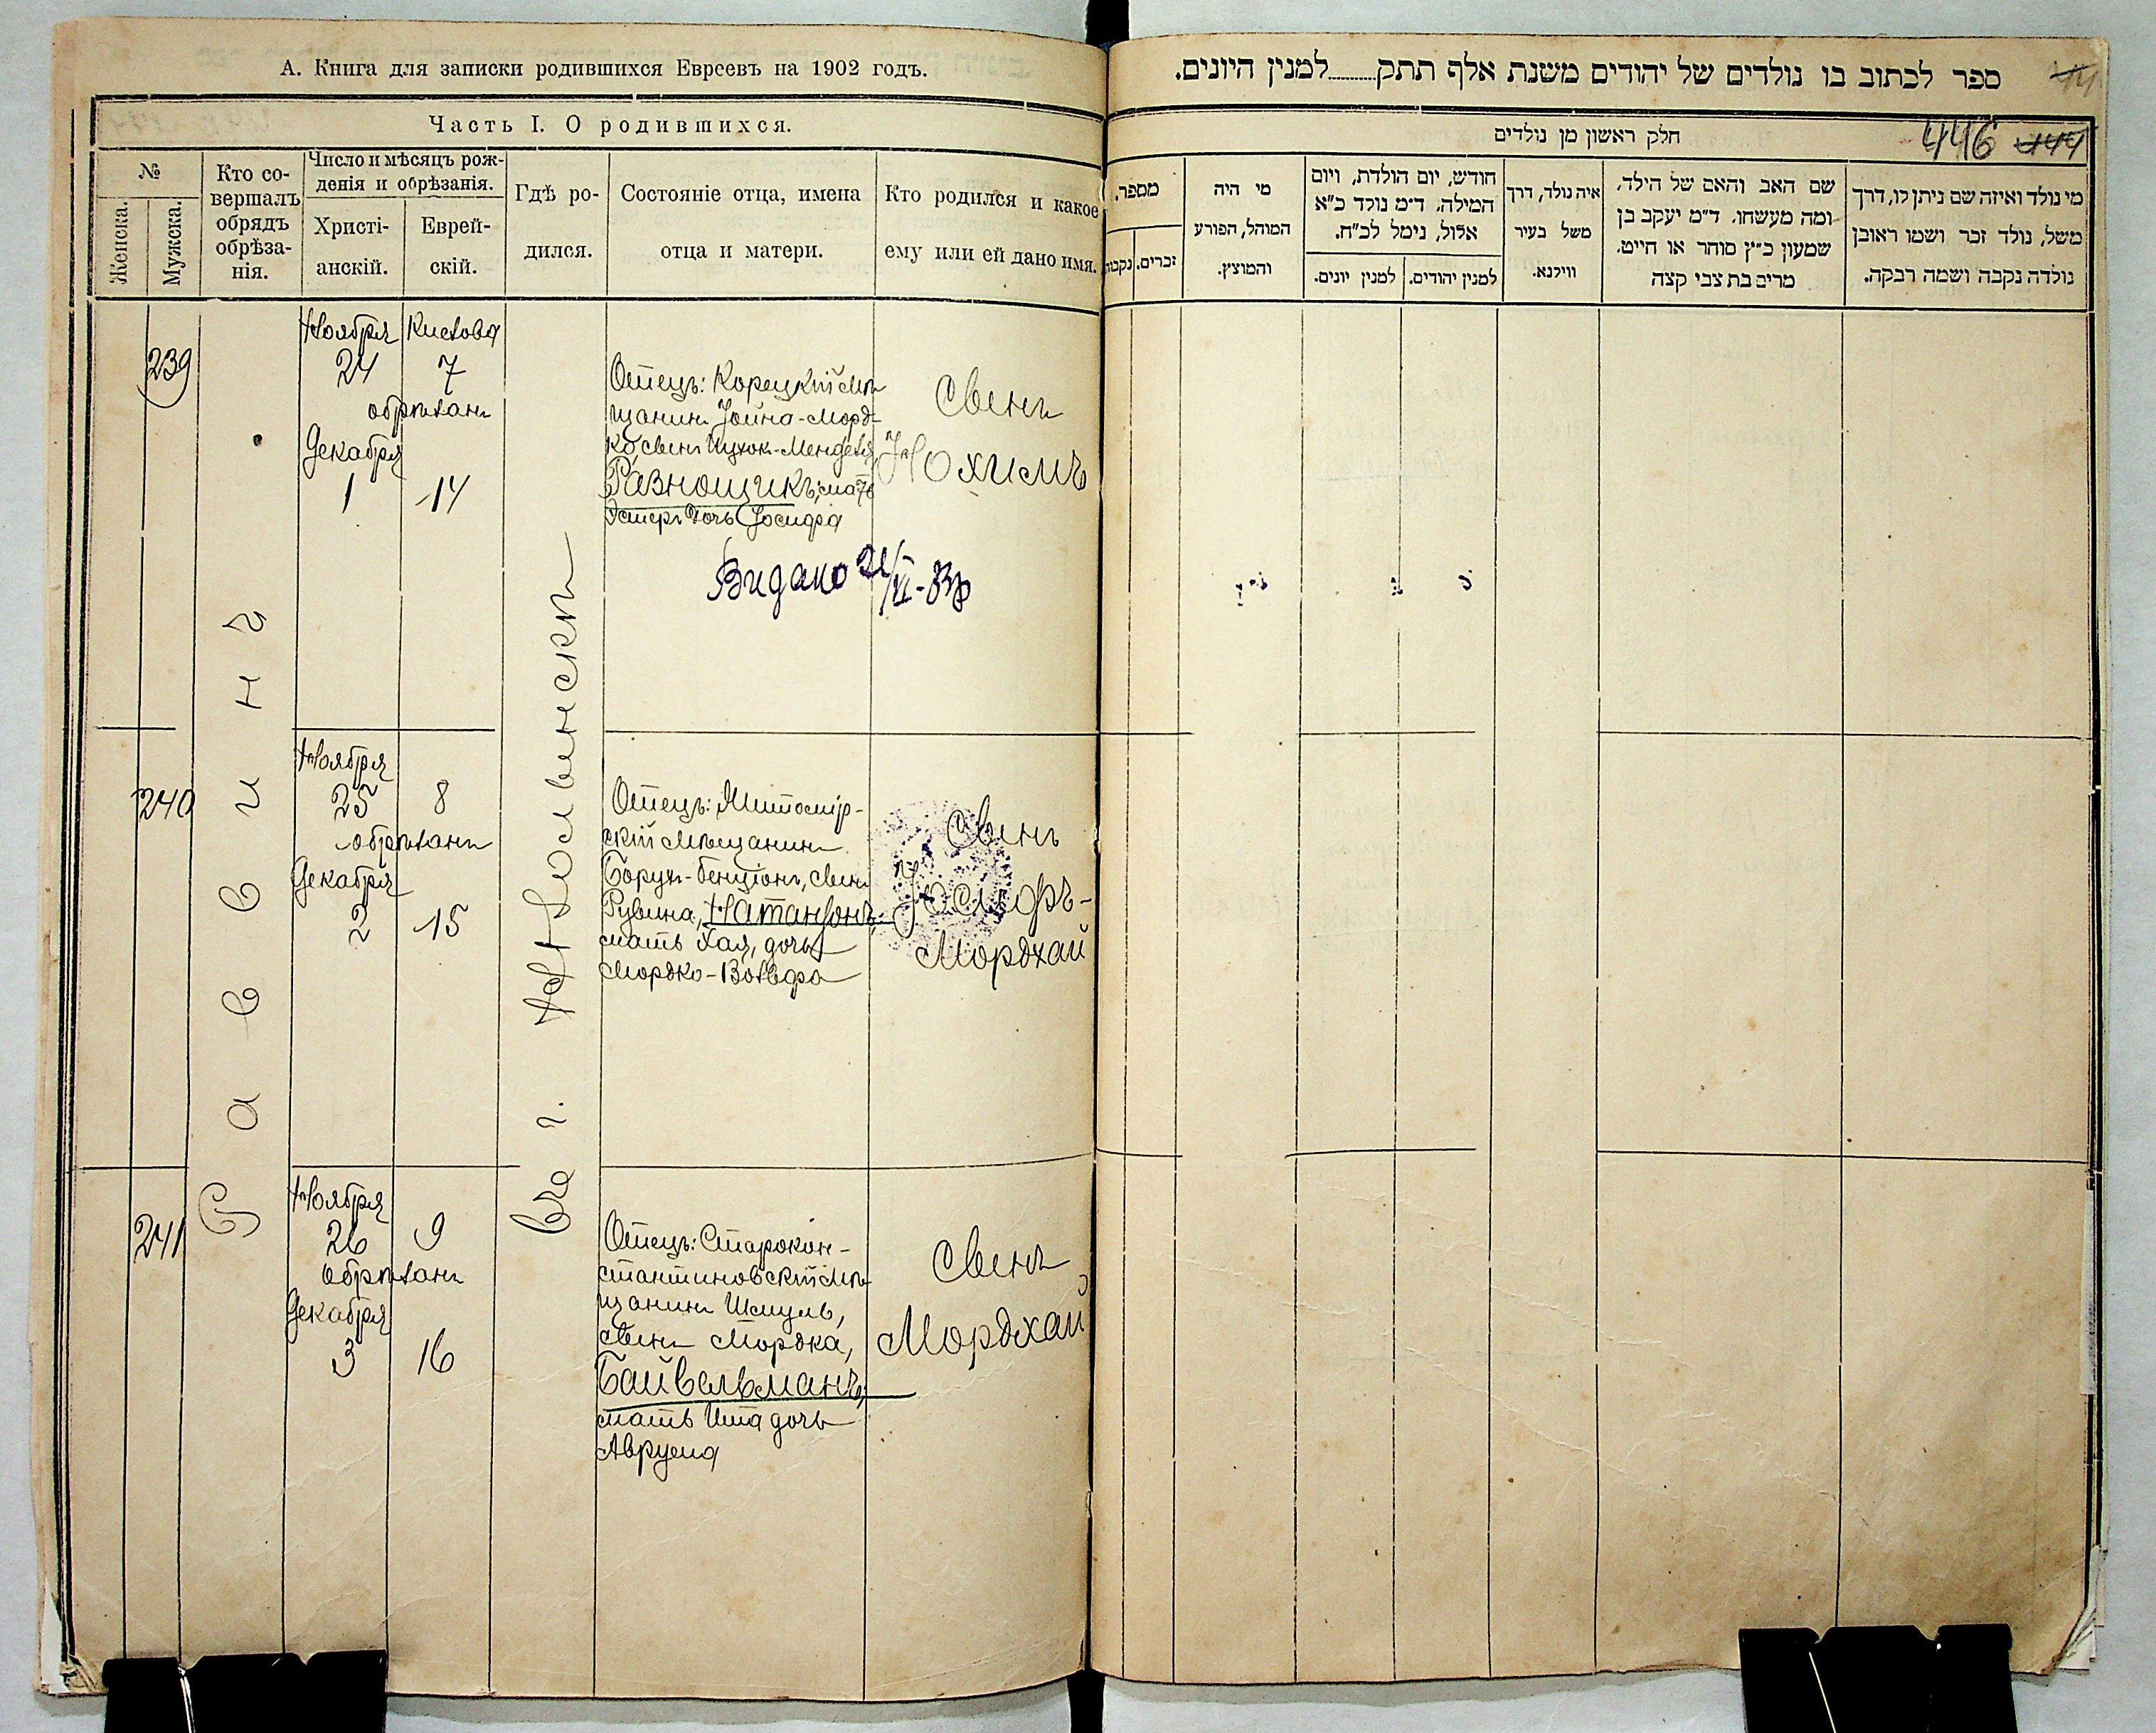 А. Книга для записки родившихся Евреевъ на 1902 годъ.
Часть I. О родившихся.
№
Женска.
Мужска.
Кто со-
вершалъ
обрядъ
обрѣза-
нія.
Число и мѣсяцъ рож-
денія и обрѣзанія.
Христі-
анскій.
Еврей-
скій.
Гдѣ ро-
дился.
Состояніе отца, имена
отца и матери.
Кто родился и какое
ему или ей дано имя.
Раввинъ
Въ г.
239
Ноября Кислева
24 7
обрѣзанъ
Декабря
1 14
Отецъ: Корецкій мѣ-
щанинъ Іойна-Морд-
ко, сынъ Ицхок-Менделя
Разнощикъ, мать
Эстеръ дочь Іосифа
Сынъ
Нохимъ
Видано 21/VI-33р
240
Ноября
25 8
обрѣзанъ
Декабря
2 15
Отецъ: Житомір-
скій мѣщанинъ
Борух-Бенціонъ, сынъ
Рувина, Натанзонъ,
мать Хая, дочь
Мордко-Вольфа
Сынъ
Іосифъ-
Мордхай
241
Ноября
26 9
обрѣзанъ
Декабря
3 16
Отецъ: Старокон-
стантиновскій мѣ-
щанинъ Шмуль,
сынъ Мордка,
Байвельманъ,
мать Ита дочь
Аврума
Сынъ
Мордхай
ספר לכתוב בו נולדים של יהודים משנת אלף תתק......למנין היונים.
44
חלק ראשון מן נולדים
446 444
מספר.
זכרים.
נקבות
מי היה
המוהל, הפורע
והמוצץ.
חודש, יום הולדת, ויום
המילה. ד״מ נולד כ״א
אלול, נימל לכ״ח.
למנין יונים.
למנין יהודים.
איה נולד, דרך
משל בעיר
ווילנא.
שם האב והאם של הילד,
ומה מעשהו. ד״מ יעקב בן
שמעון כ״ץ סוחר או חייט.
מרים בת צבי קצה
מי נולד ואיזה שם ניתן לו, דרך
משל, נולד זכר ושמו ראובן
נולדה נקבה ושמה רבקה.